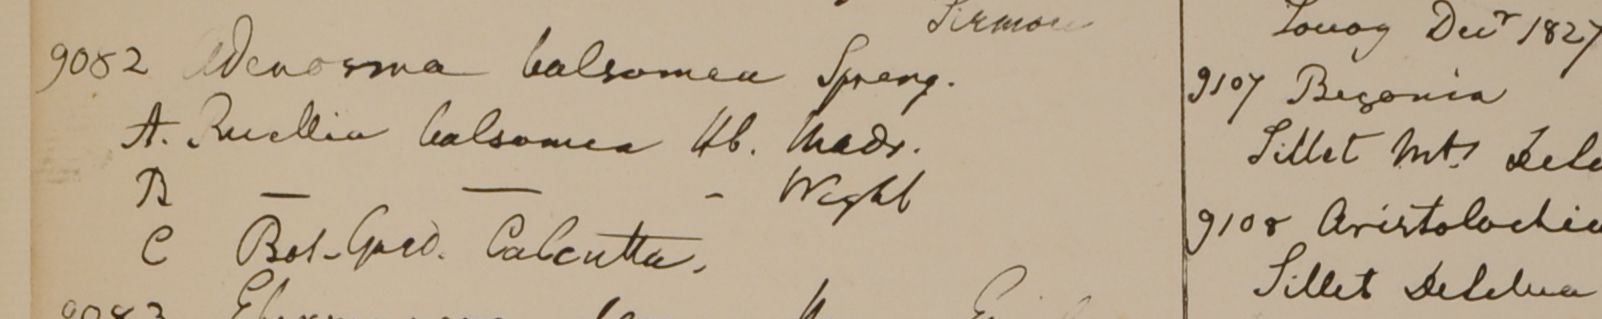 Sirmore
9082 Adenosma balsamea Spreng.
A. Ruellia balsamea Hb. Madr.
B — — - Wight
C Bot. Gard. Calcutta.
9083
Decr 1827
9107 Begonia
Sillet Mts
9108 Aristolochia
Sillet DeSelva